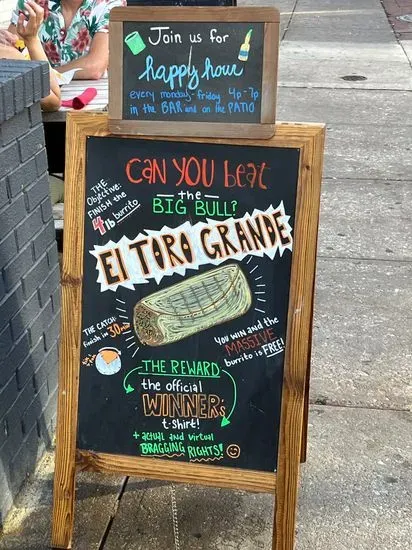 Join us for
happy hour
every monday - friday 4p-7p
in the BAR and on the PATIO
CAN YOU beat
the
BIG BULL?
THE
Objective:
FINISH the
4 lb burrito
El TORO GRANDE
THE CATCH:
finish in 30 min
YOU WIN and the
MASSIVE
burrito is FREE!
THE REWARD
the official
WINNER's
t-shirt!
+ actual and virtual
BRAGGING RIGHTS!